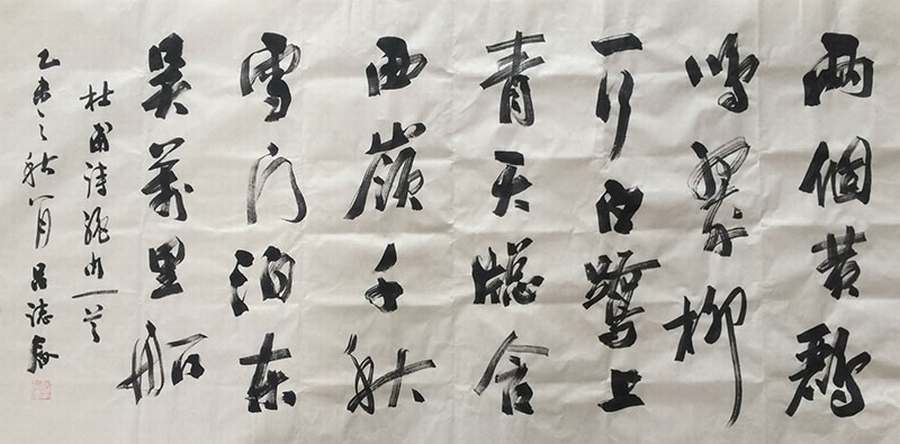 兩個黃鸝
鳴翠柳
一行白鷺上
青天牕含
西嶺千秋
雪門泊東
吳萬里船
杜甫詩絕句一首
乙未之秋八月呂誌